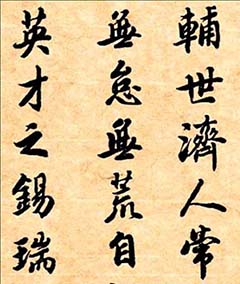 輔世濟人常
無怠無荒自
英才之錫瑞